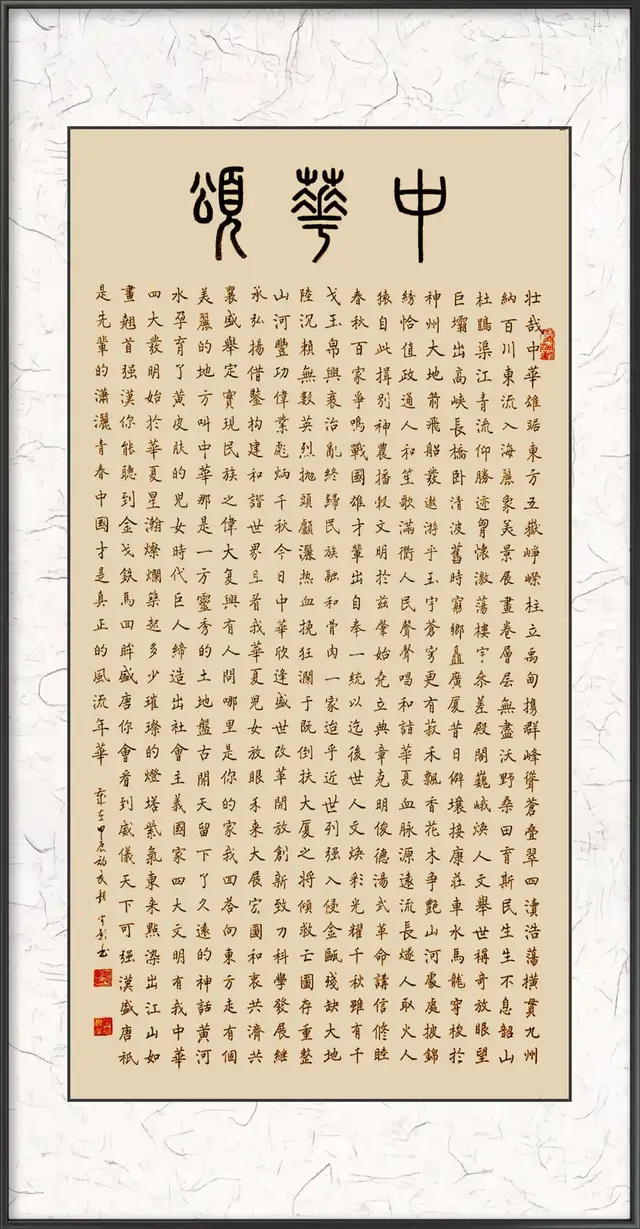 中華頌
壯哉中華雄踞東方五嶽崢嶸柱立禹甸攜群峰聳蒼疊翠四瀆浩蕩橫貫九州
納百川東流入海麗象美景展畫卷層层無盡沃野桑田育斯民生生不息韶山
杜鵑渠江青流仰勝迹胷懷激蕩樓宇參差殿閣巍峨煥人文舉世稱奇放眼望
巨壩出高峽長橋卧清波舊時窮鄉矗廣厦昔日僻壤接康莊車水馬龍穿梭於
神州大地箭飛船發遨游乎玉宇蒼穹更有菽禾飄香花木争艷山河處處披錦
綉恰值政通人和笙歌滿衢人民聲聲唱和諧華夏血脉源遠流長燧人取火人
猿自此揖别神農播穀文明於兹肇始堯立典章克明俊德湯武革命講信修睦
春秋百家爭鳴戰國雄才輩出自奉一統以迄後世人文焕彩光耀千秋雖有干
戈玉帛興衰治亂終歸民族融和骨肉一家迨乎近世列强入侵金甌殘缺大地
陸沉賴無數英烈抛頭顱灑热血挽狂瀾于既倒扶大厦之將傾救亡圖存重整
山河豐功偉業彪炳千秋今日中華欣逢盛世改革開放創新致力科學發展継
承弘揚借鑒构建和諧世界且看我華夏兒女放眼未来大展宏圖和衷共濟共
襄盛舉定實現民族之偉大复興有人問哪里是你的家我回答向東方走有個
美麗的地方叫中華那是一方靈秀的土地盤古開天留下了久遠的神話黄河
水孕育了黄皮肤的兒女時代巨人締造出社會主義國家四大文明有我中華
四大發明始於華夏星瀚燦爛築起多少璀璨的燈塔紫氣東来點染出江山如
畫翹首强漢你能聽到金戈鉄馬回眸盛唐你會看到威儀天下可强漢盛唐祇
是先輩的瀟灑青春中國才是真正的風流年華